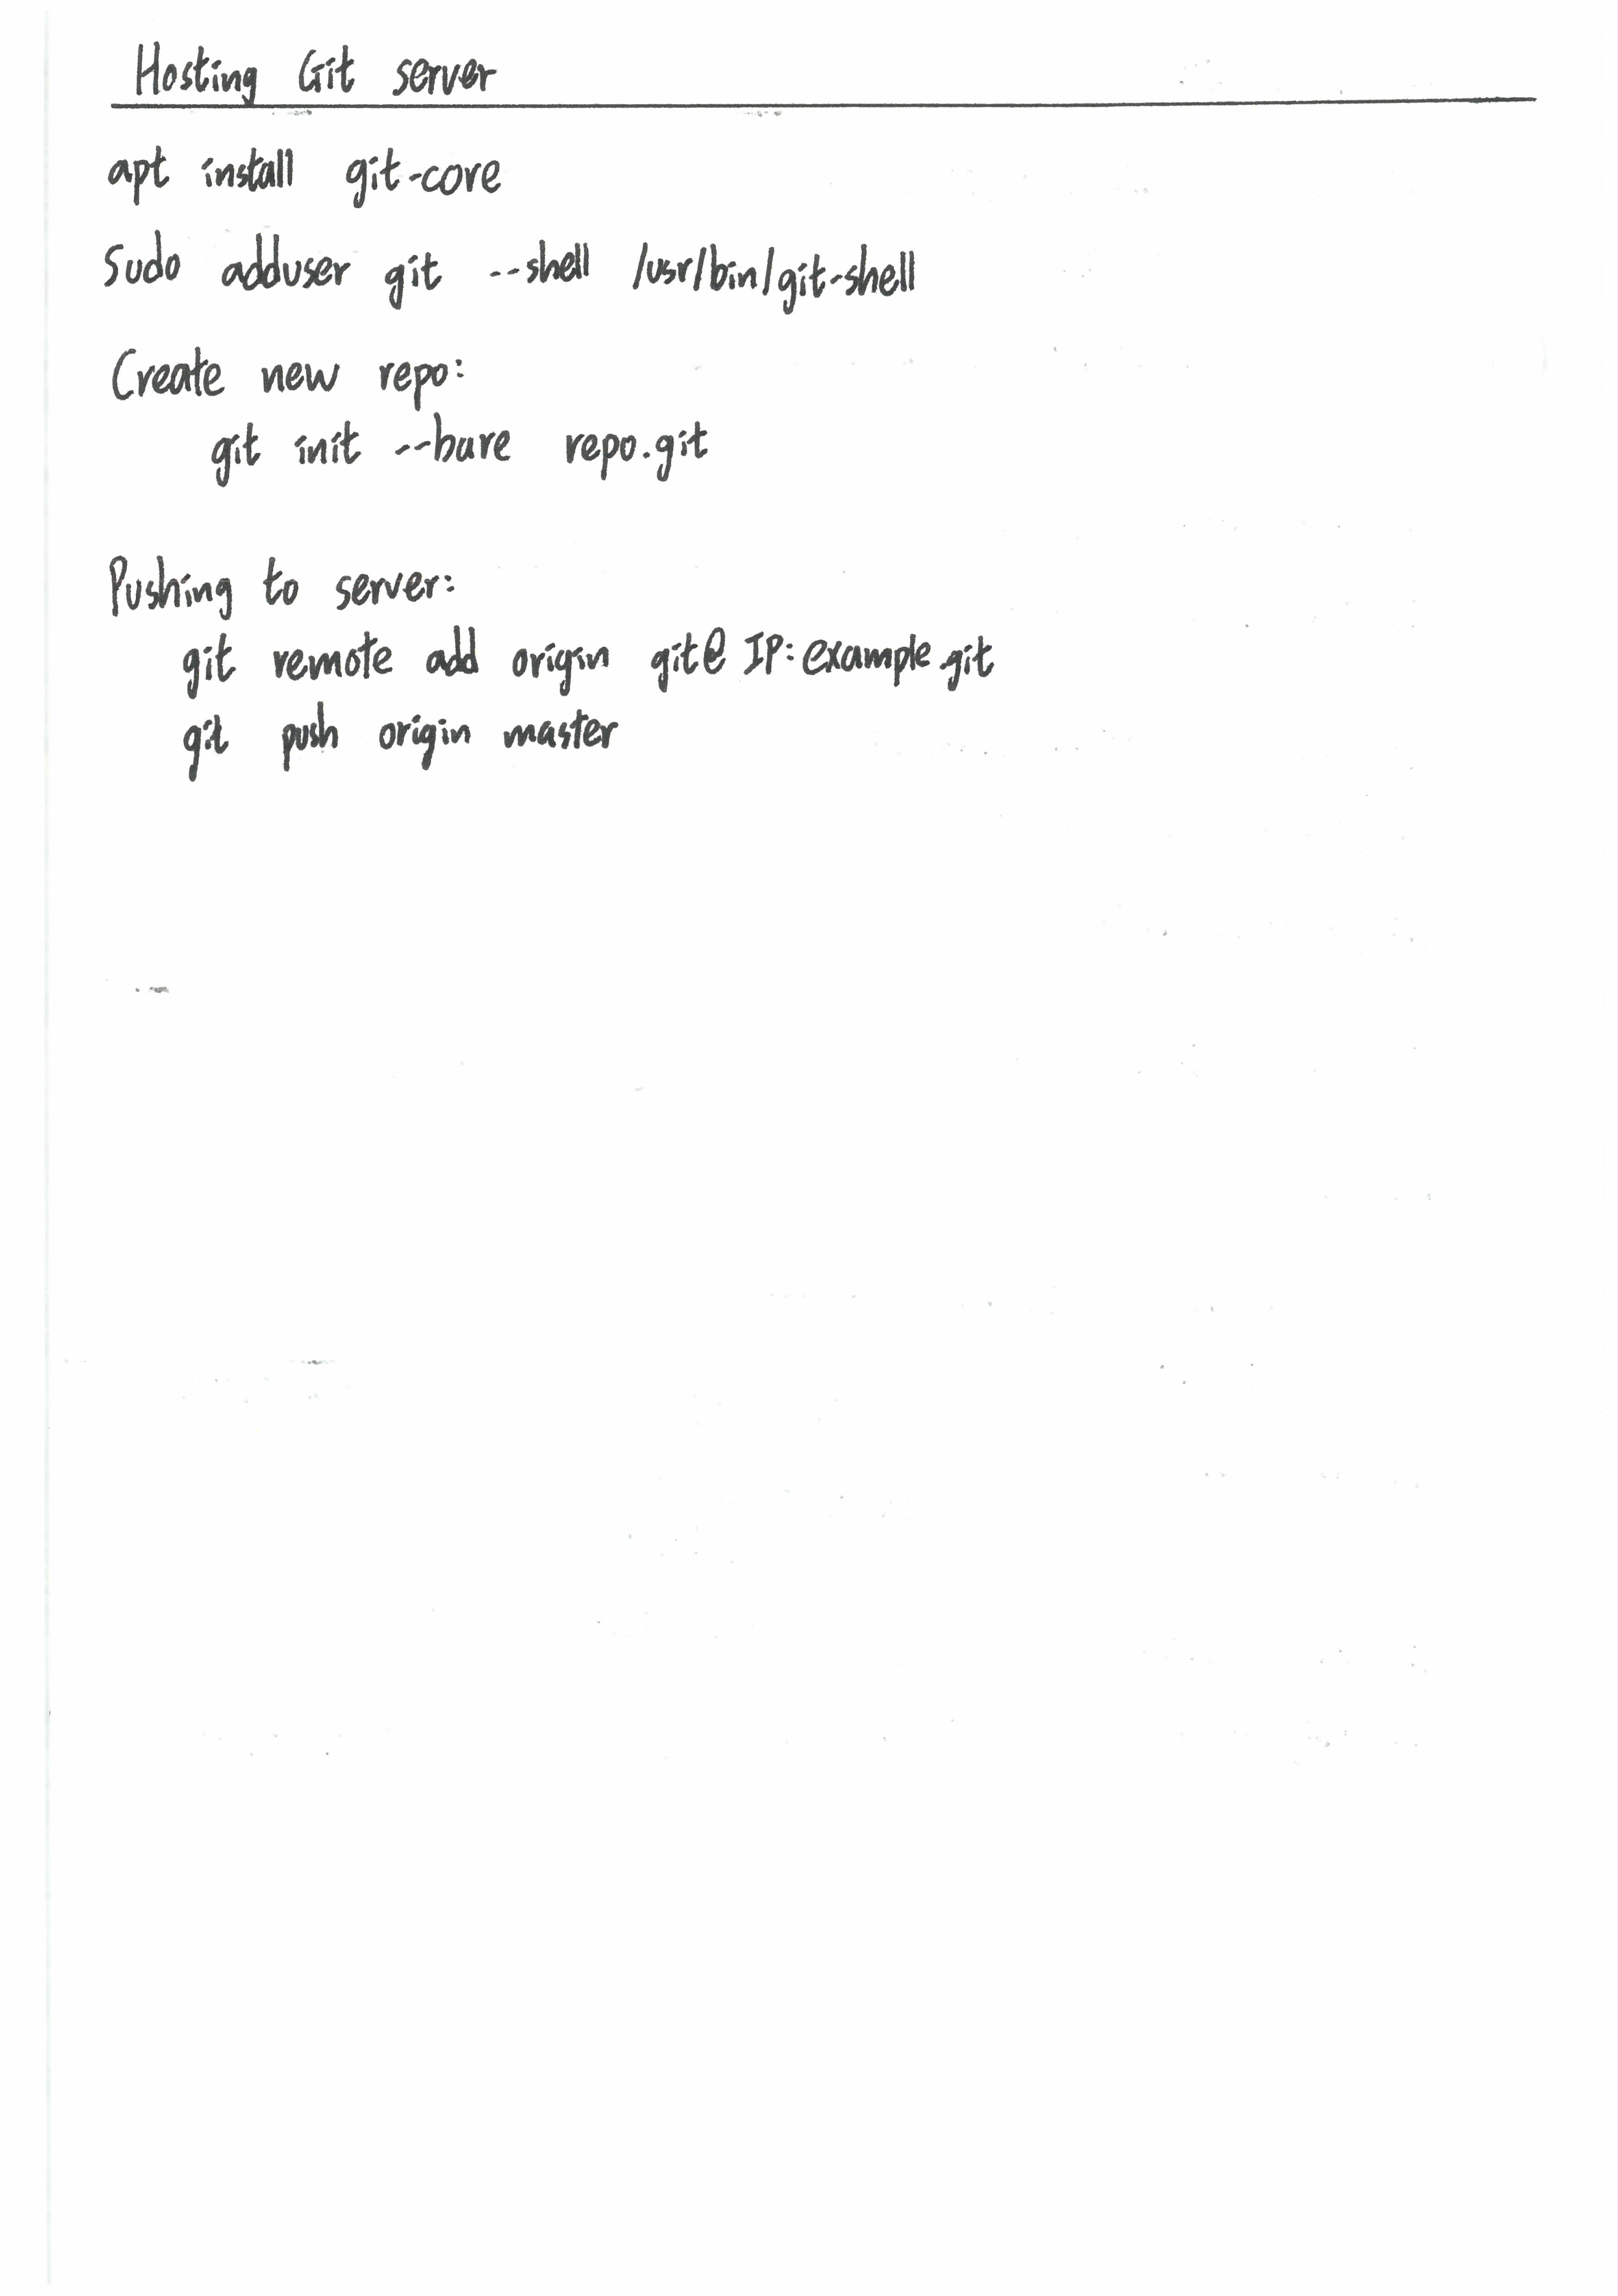 Hosting Git server
apt install git-core
sudo adduser git --shell /usr/bin/git-shell
Create new repo:
git init --bare repo.git
Pushing to server:
git remote add origin git@IP:example.git
git push origin master